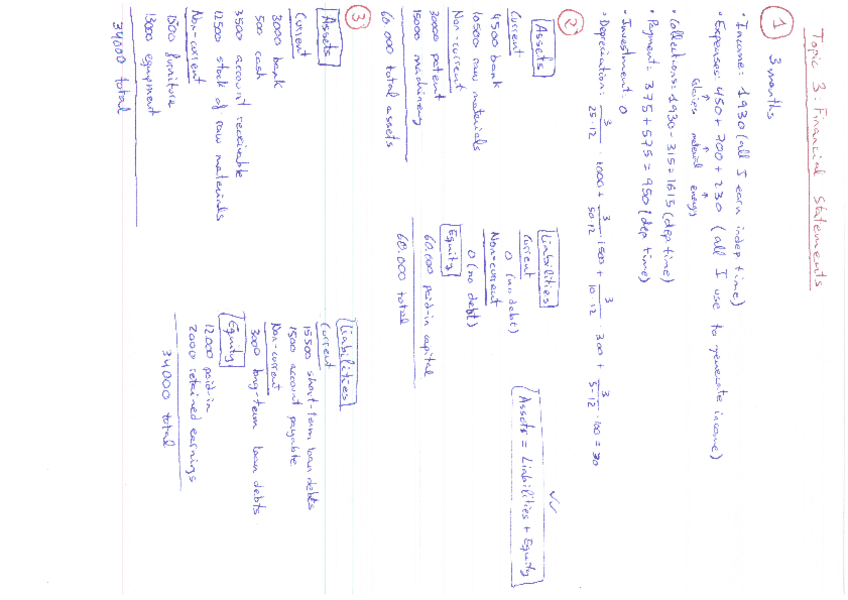 Topic 3: Financial Statements
1
3 months
• Income: 1930 (all I earn indep time)
• Expenses: 450 + 700 + 230 (all I use to generate income)
material energy
• Collections: 1930 - 315 = 1615 (dep time)
• Payment: 375 + 575 = 950 (dep time)
• Investment: 0
• Depreciation: 3/25·12 · 1000 + 3/50·12 · 1500 + 3/10·12 · 300 + 3/5·12 · 100 = 30
2
Assets
Current
4500 bank
10500 raw materials
Non-current
30000 patent
15000 machinery
60 000 total assets
Liabilities
Current
0 (no debt)
Non-current
0 (no debt)
Equity
60.000 paid-in capital
60.000 total
Assets = Liabilities + Equity
3
Assets
Current
3000 bank
500 cash
3500 account receivable
12500 stock of raw materials
Non-current
1500 furniture
13000 equipment
34000 total
Liabilities
Current
15500 short-term loan debts
1500 account payable
Non-current
3000 long-term loan debts
Equity
12000 paid-in
2000 retained earnings
34000 total